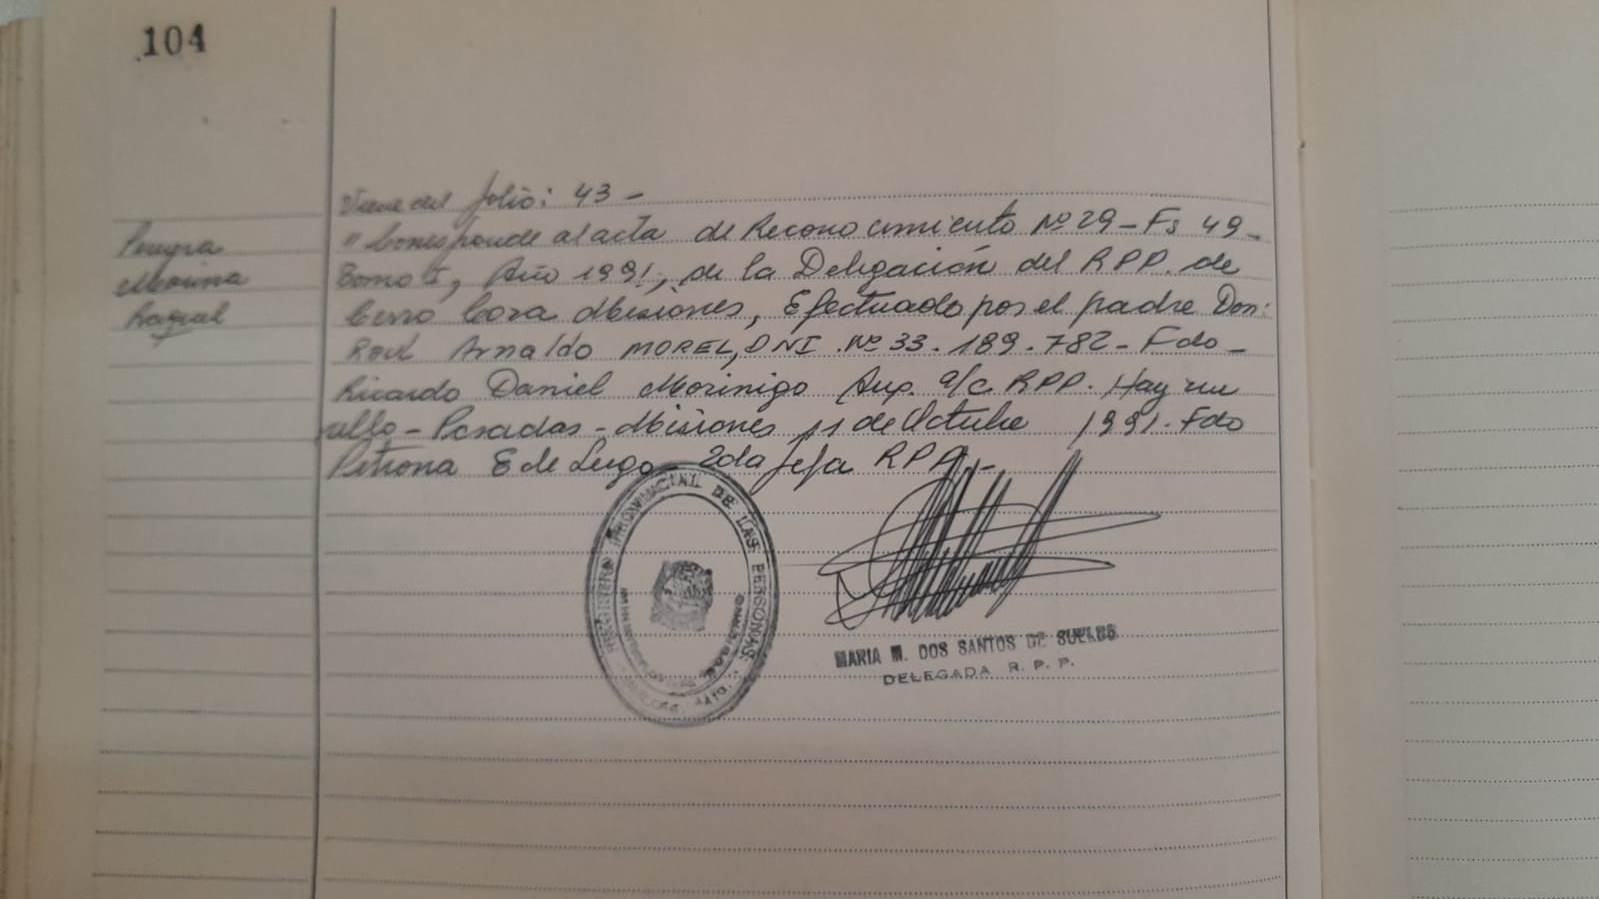 104
Viene del folio: 43 -
Pereyra
Marina
Raquel
" Corresponde al acta de Reconocimiento Nº 29 - Fs 49 -
Tomo I, Año 1991, de la Delegación del RPP. de
Cerro Cora Misiones, Efectuado por el padre Don:
Raul Arnaldo MOREL, DNI Nº 33.189.782 - Fdo -
Ricardo Daniel Morinigo Aup. a/c RPP. Hay un
sello - Posadas - Misiones 11 de Octubre 1991. Fdo
Petrona E de Lugo - 2da Jefa RPP -
REGISTRO PROVINCIAL DE LAS PERSONAS
MARIA M. DOS SANTOS DE
DELEGADA R. P. P.